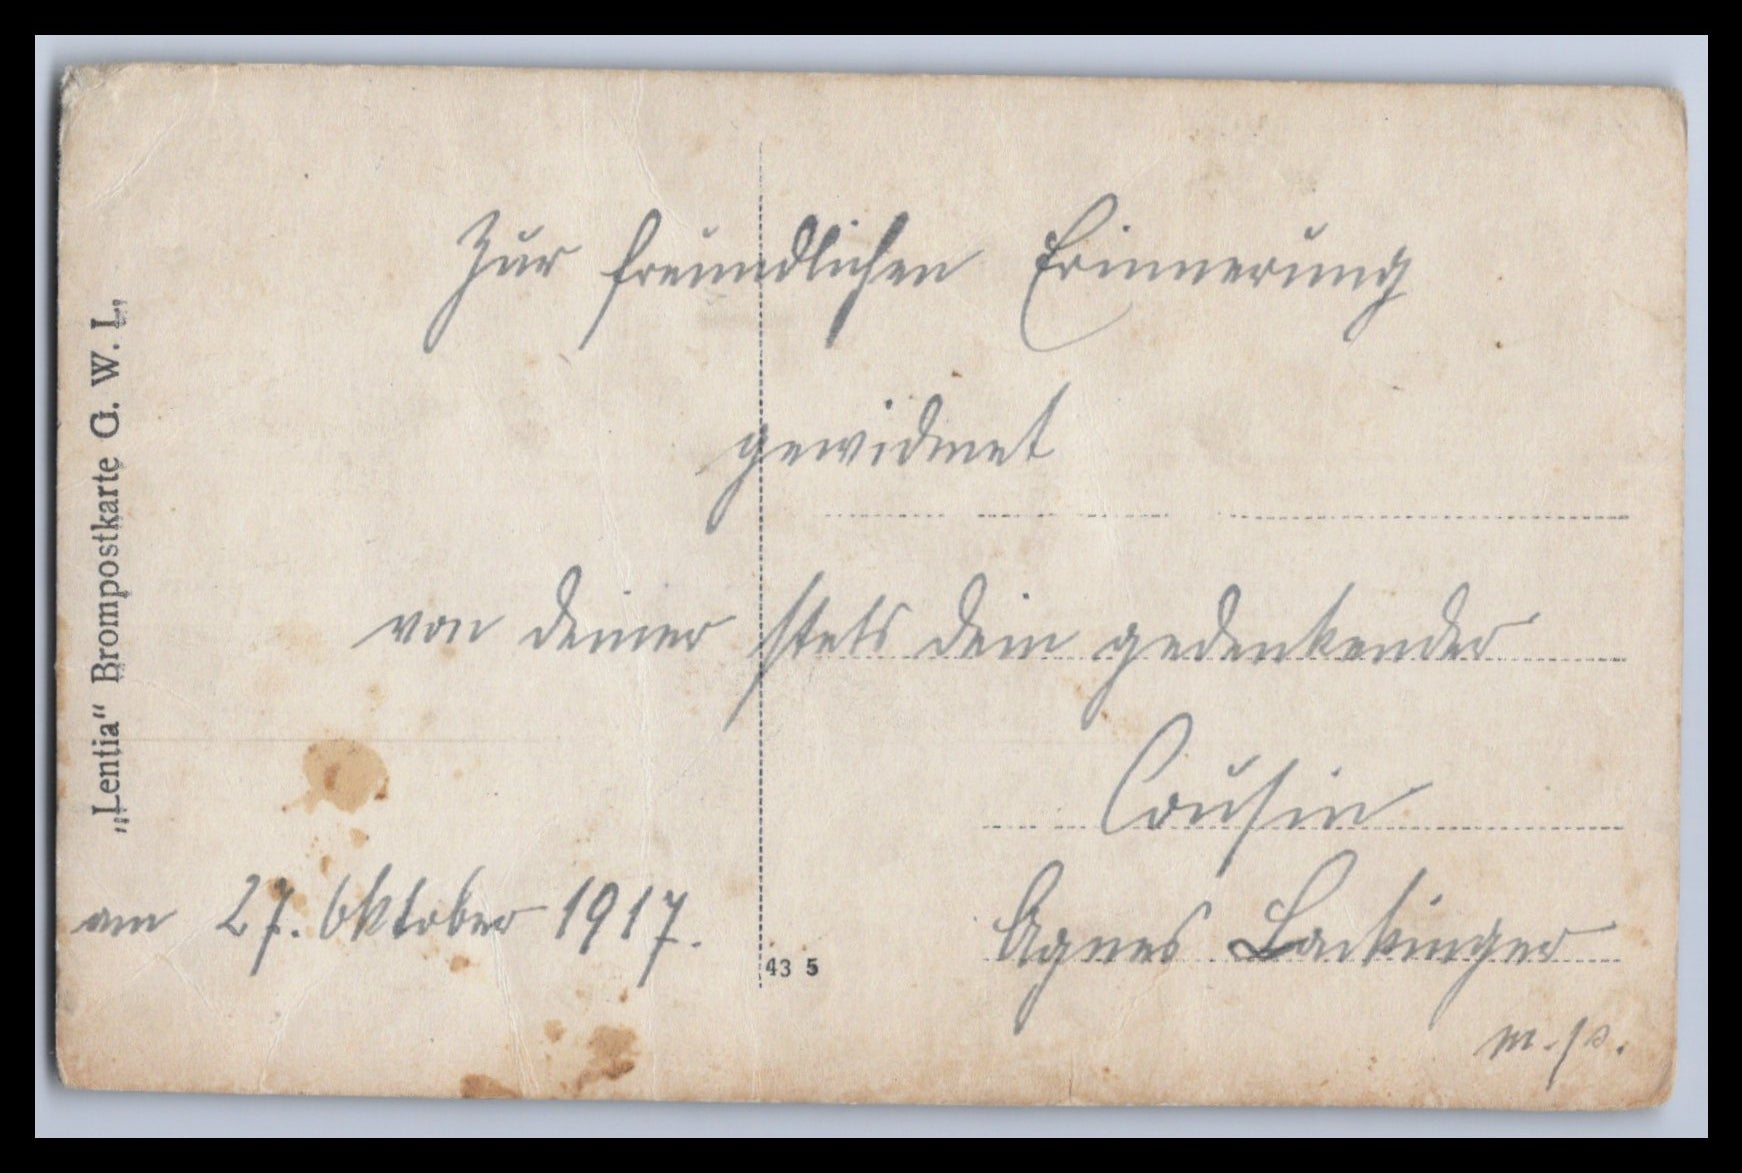 Zur freundlichen Erinnerung
gewidmet
von deiner stets dein gedenkender
Cousin
Agnes Lackinger
m.p.
am 27. Oktober 1917.
„Lentia“ Brompostkarte G. W. I.
43 5